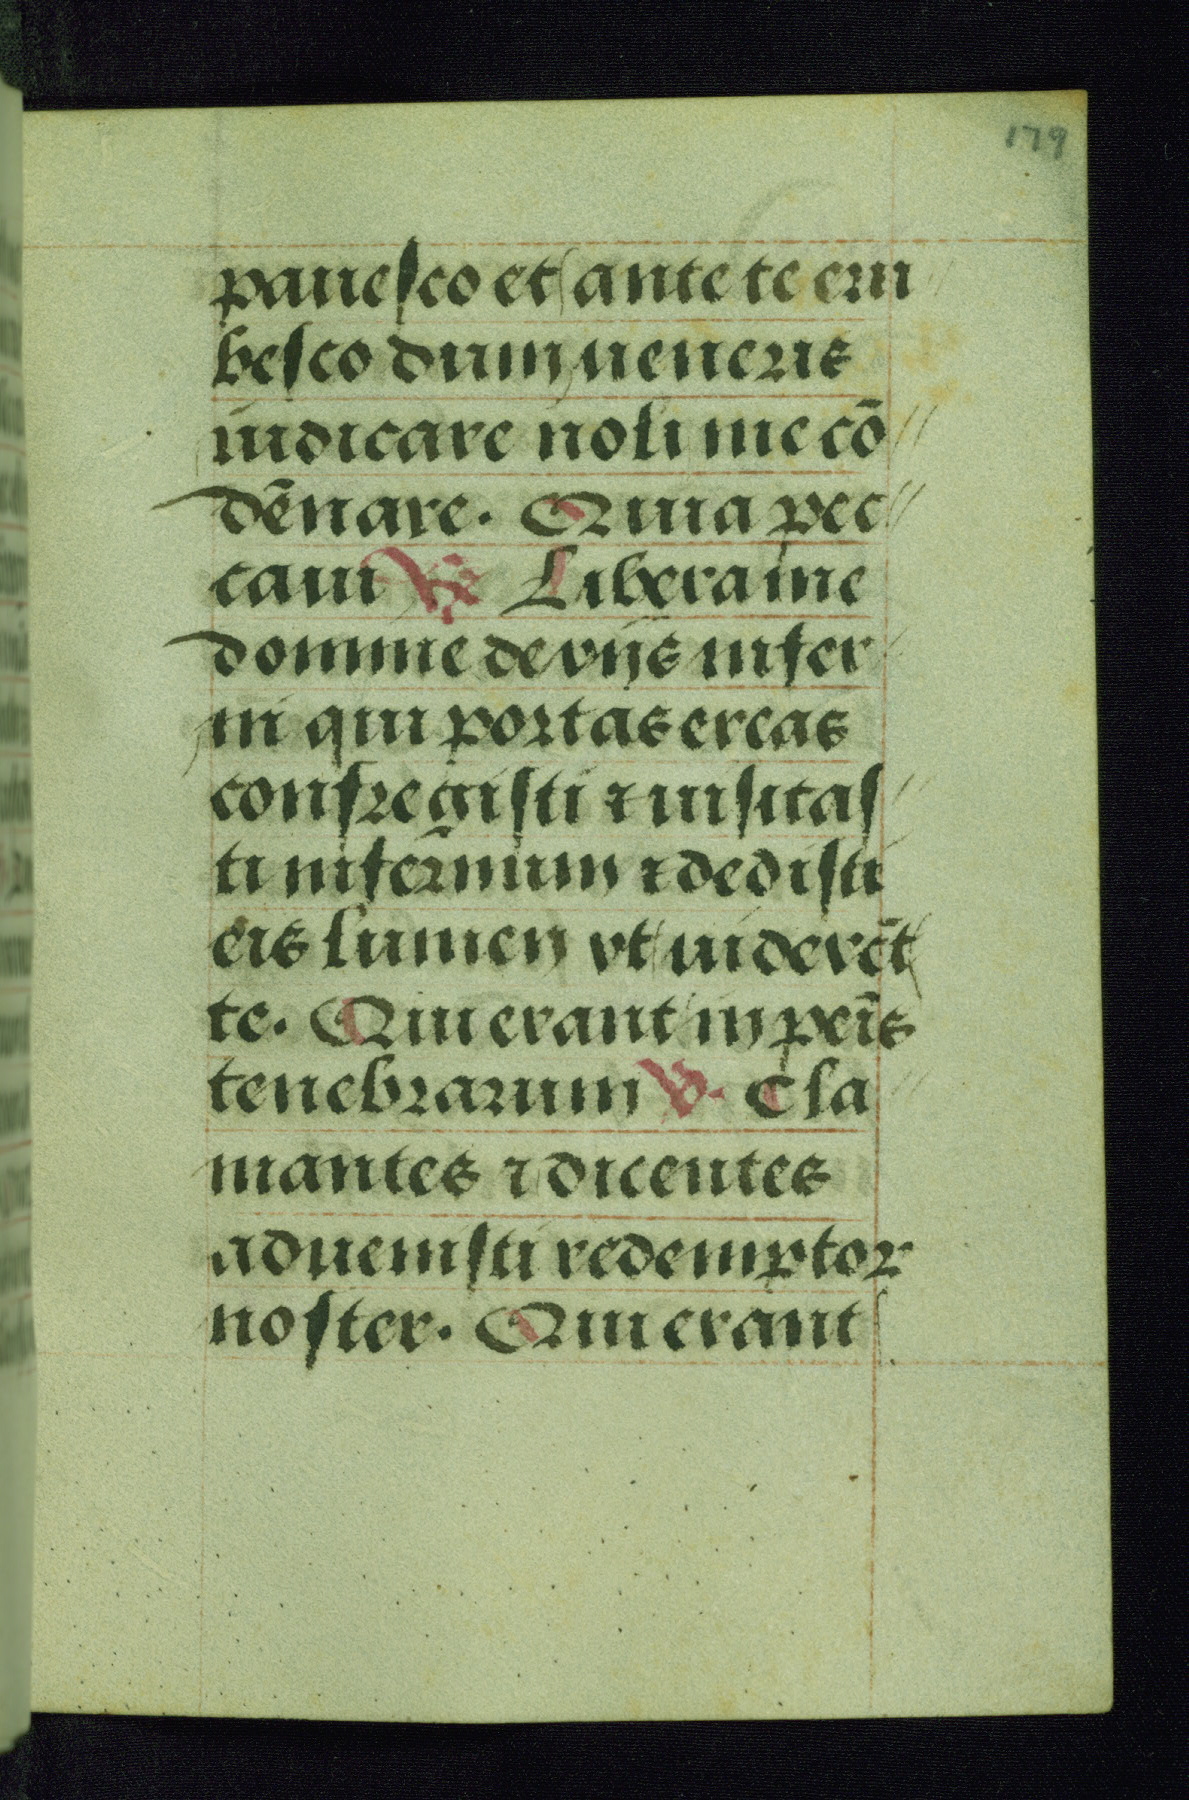 179
pauesco et ante te eru
besco dum ueneris
iudicare noli me cō
dēnare. Quia pec
caui ℟ Libera me
domine de vijs infer
ni qui portas ereas
confregisti ⁊ uisitas
ti infernum ⁊ dedisti
eis lumen vt uiderēt
te. Qui erant in peīs
tenebrarum ℣. Cla
mantes ⁊ dicentes
aduenisti redemptor
noster. Qui erant